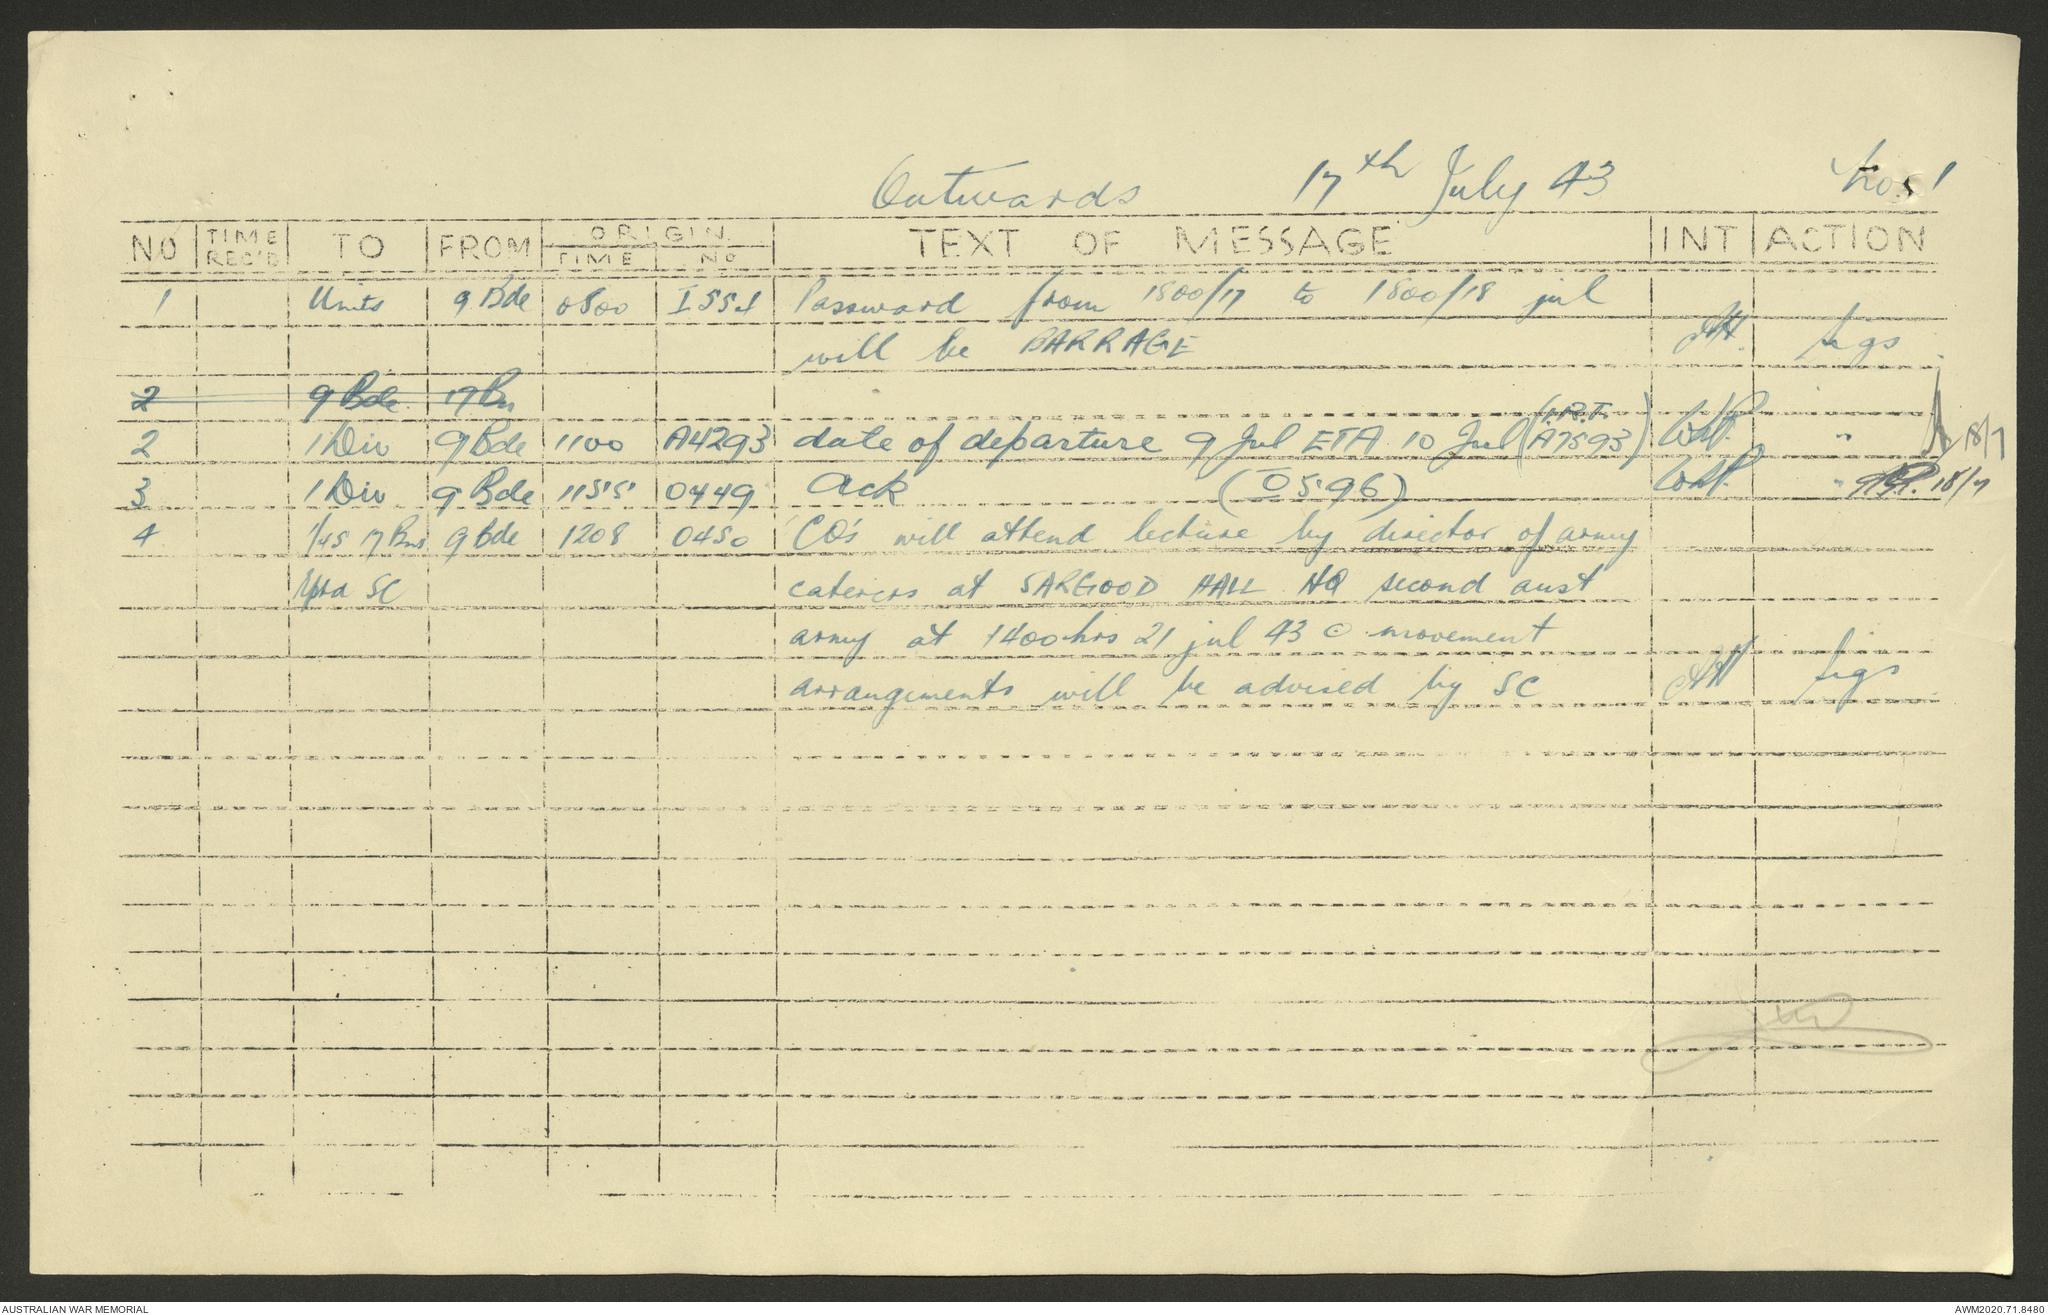 Outwards 17th July 43 No 1
NO TIME REC'D TO FROM ORIGIN TIME NO TEXT OF MESSAGE INT ACTION
1 Units 9 Bde 0800 Password from 1800/17 to 1800/18 jul
will be BARRAGE sigs
2 9 Bde 17 Bn
(I.R.T.
2 1 Div 9 Bde 1100 A4293 date of departure 9 Jul ETA 10 Jul A7593) WHP. " 18/7
3 1 Div 9 Bde 1155 0449 Ack (O596) WHP. " 18/7
4 1/45 17 Bns 9 Bde 1208 0450 CO's will attend lecture by director of army
rptd SC caterers at SARGOOD HALL HQ second aust
army at 1400 hrs 21 jul 43 ⊙ movement
arrangements will be advised by SC sigs
AUSTRALIAN WAR MEMORIAL AWM2020.71.8480